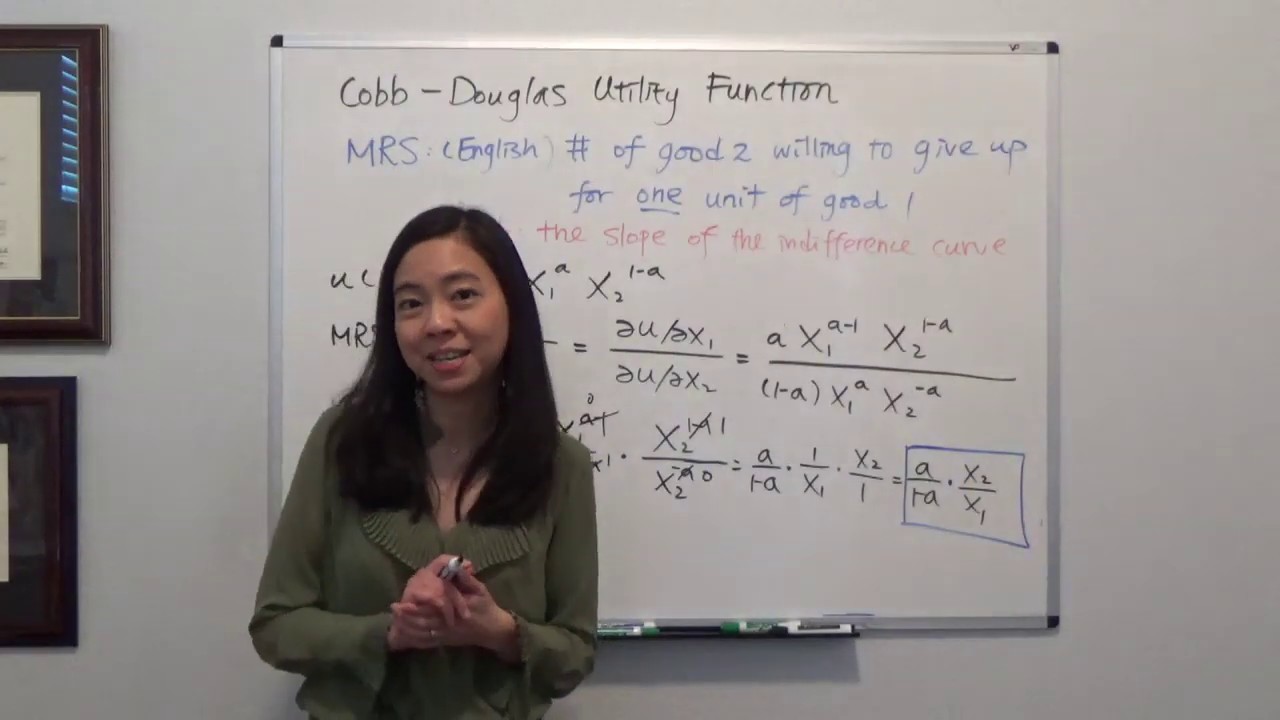 Cobb-Douglas Utility Function
MRS: (English) # of good 2 willing to give up
for one unit of good 1
the slope of the indifference curve
u( X₁^a X₂^(1-a)
MRS = ∂U/∂X₁ / ∂U/∂X₂ = a X₁^(a-1) X₂^(1-a) / (1-a) X₁^a X₂^(-a)
· X₂^1 / X₂^0 = a/1-a · 1/X₁ · X₂/1 = a/1-a · X₂/X₁